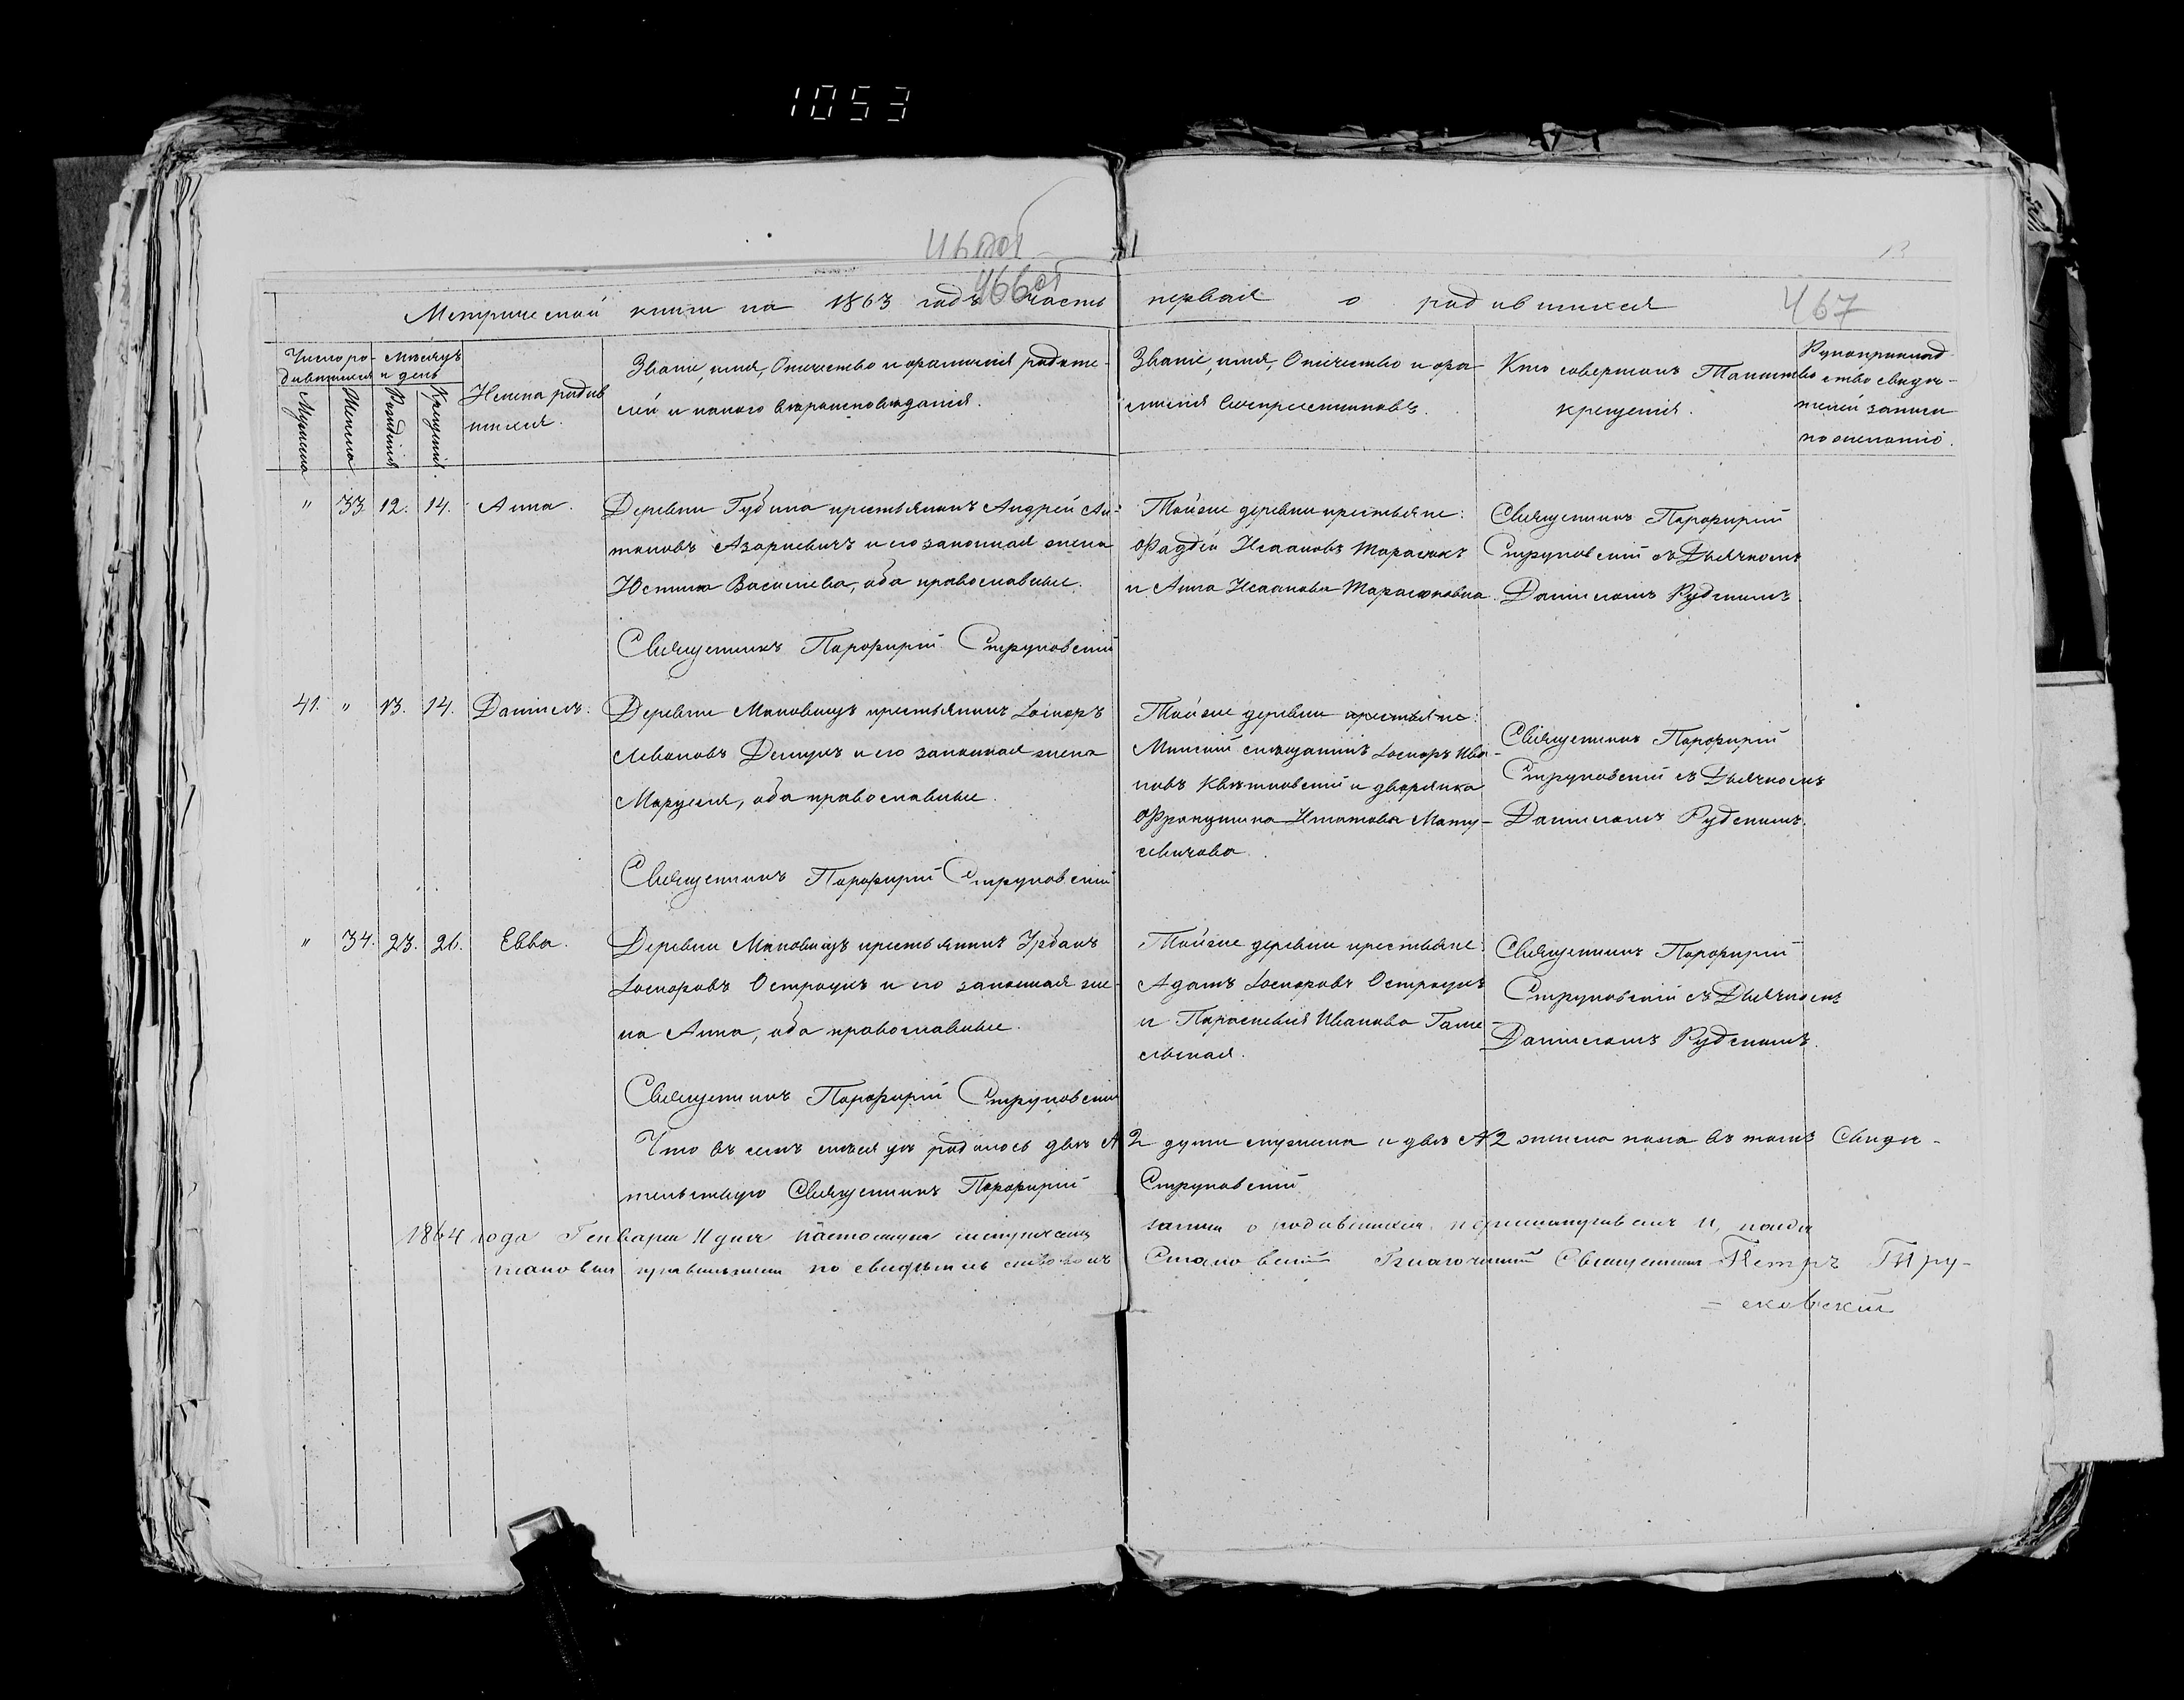 1053
466об
467
13
Метрической книги на 1863 годъ часть первая о родившихся
Число ро-
дившихся
Мужеска
Женска
Мѣсяцъ
и день
Рожденія
Крещенія
Имена родив
шихся.
Званіе, имя, Отчество и фамилія родите-
лей и какого вѣроисповѣданія.
Званіе, имя, Отчество и фа-
милія воспреемниковъ.
Кто совершалъ Таинство
крещенія.
Рукоприклад
ство свидѣ-
телей записи
по желанію.
" 33 12. 14. Анна.
Деревни Губина крестьянинъ Андрей Ан-
тоновъ Азаркевичъ и его законная жена
Юстина Васильева, оба православные.
Священникъ Порфирій Струковскій
Тойже деревни крестьяне:
Фаддей Исааковъ Тарасюкъ
и Анна Исаакова Тарасюковна.
Священникъ Порфирій
Струковскій съ Дьячкомъ
Даниломъ Рудскимъ.
41. " 13. 14. Даніилъ.
Деревни Маковищъ крестьянинъ Іосифъ
Левоновъ Демчукъ и его законная жена
Маруся, оба православные.
Священникъ Порфирій Струковскій
Тойже деревни крестьяне:
Минскій мѣщанинъ Іосифъ Ива-
новъ Квятковскій и дворянка
Францишка Игнатова Мату-
севичова.
Священникъ Порфирій
Струковскій съ Дьячкомъ
Даниломъ Рудскимъ.
" 34. 23. 26. Евва.
Деревни Маковищъ крестьянинъ Урбанъ
Іосифовъ Остраухъ и его законная же-
на Анна, оба православные.
Священникъ Порфирій Струковскій
Тойже деревни крестьяне:
Адамъ Іосифовъ Остраухъ
и Параскевія Иванова
Священникъ Порфирій
Струковскій съ Дьячкомъ
Даниломъ Рудскимъ.
Что въ семъ мѣсяцѣ родилось двѣ № 2 души мужеска и двѣ № 2 женска пола въ томъ Свидѣ-
тельствую Священникъ Порфирій Струковскій
1864 года Генваря 11 дня
записи о родившихся
Благочинный Священникъ Петръ